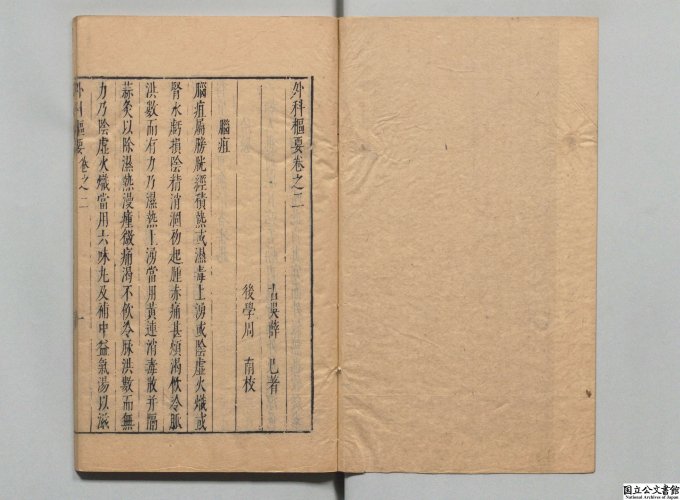 外科樞要卷之二
古吳薛 己著
後學周 南校
腦疽
腦疽屬膀胱經積熱或濕毒上湧或陰虛火熾或
腎水虧損陰精消涸初起腫赤痛甚煩渴飲冷脈
洪數而有力乃濕熱上湧當用黃連消毒散并隔
蒜灸以除濕熱漫腫微痛渴不飲冷脉洪數而無
力乃陰虛火熾當用六味丸及補中益氣湯以滋
外科樞要卷之二
一
国立公文書館
National Archives of Japan